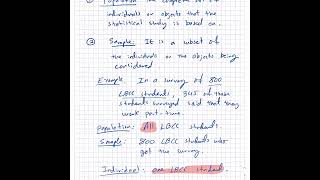 individuals or objects that the
statistical study is based on.
② Sample: It is a subset of
the individuals or the objects being
considered
Example: In a survey of 800
LBCC students, 345 of those
students surveyed said that they
work part-time.
Population: All LBCC students.
Sample: 800 LBCC students who
got the survey.
Individual: one LBCC student.